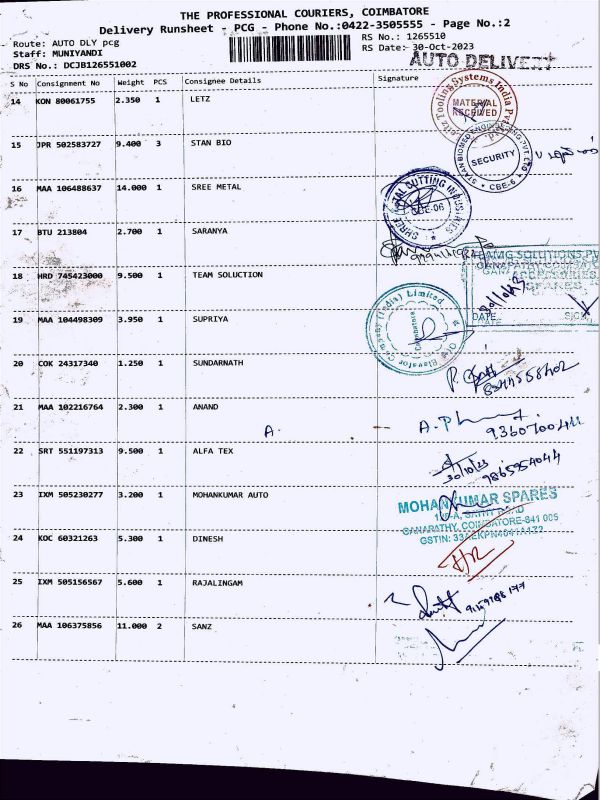 THE PROFESSIONAL COURIERS, COIMBATORE
Delivery Runsheet - PCG - Phone No.:0422-3505555 - Page No.:2
Route: AUTO DLY pcg
Staff: MUNIYANDI
DRS No.: DCJB126551002
RS No.: 1265510
RS Date: 30-Oct-2023
AUTO DELIVERY
S No Consignment No Weight PCS Consignee Details Signature
14 KON 80061755 2.350 1 LETZ
Tooling Systems India Pvt
MATERIAL RECEIVED
15 JPR 502583727 9.400 3 STAN BIO
SECURITY
CBE-6
16 MAA 106488637 14.000 1 SREE METAL
SHREE METAL CUTTING INDUSTRIES
CBE-06
17 BTU 213804 2.700 1 SARANYA
18 HRD 745423000 9.500 1 TEAM SOLUCTION
SOLUTIONS PV
SPARES
30/10/23
DATE
19 MAA 104498309 3.950 1 SUPRIYA
Elevator Company (India) Limited
Coimbatore
20 COK 24317340 1.250 1 SUNDARNATH
8344558402
21 MAA 102216764 2.300 1 ANAND
A.
A.P
22 SRT 551197313 9.500 1 ALFA TEX
30/10/23
23 IXM 505230277 3.200 1 MOHANKUMAR AUTO
MOHANKUMAR SPARES
GANAPATHY, COIMBATORE-641 006
24 KOC 60321263 5.300 1 DINESH
25 IXM 505156567 5.600 1 RAJALINGAM
26 MAA 106375856 11.000 2 SANZ